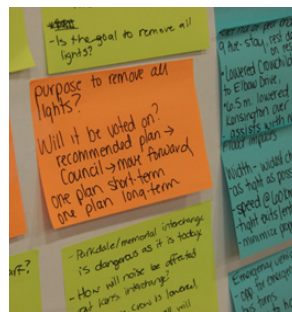 -Is the goal to remove all
lights?
purpose to remove all
lights?
Will it be voted on?
recommended plan →
Council → move forward
one plan short-term
one plan long-term
- Parkdale/memorial interchange
is dangerous as it is today
- How will noise be affected
interchange?
crow is lowered
will
-stay
• Lowered Crowchild
to Elbow Drive,
6.5m lowered
Kensington over
assists with
impacts
Width -
as tight as
- speed @ 60km
- tight exits/ent
- minimize
Emergency
for emerg